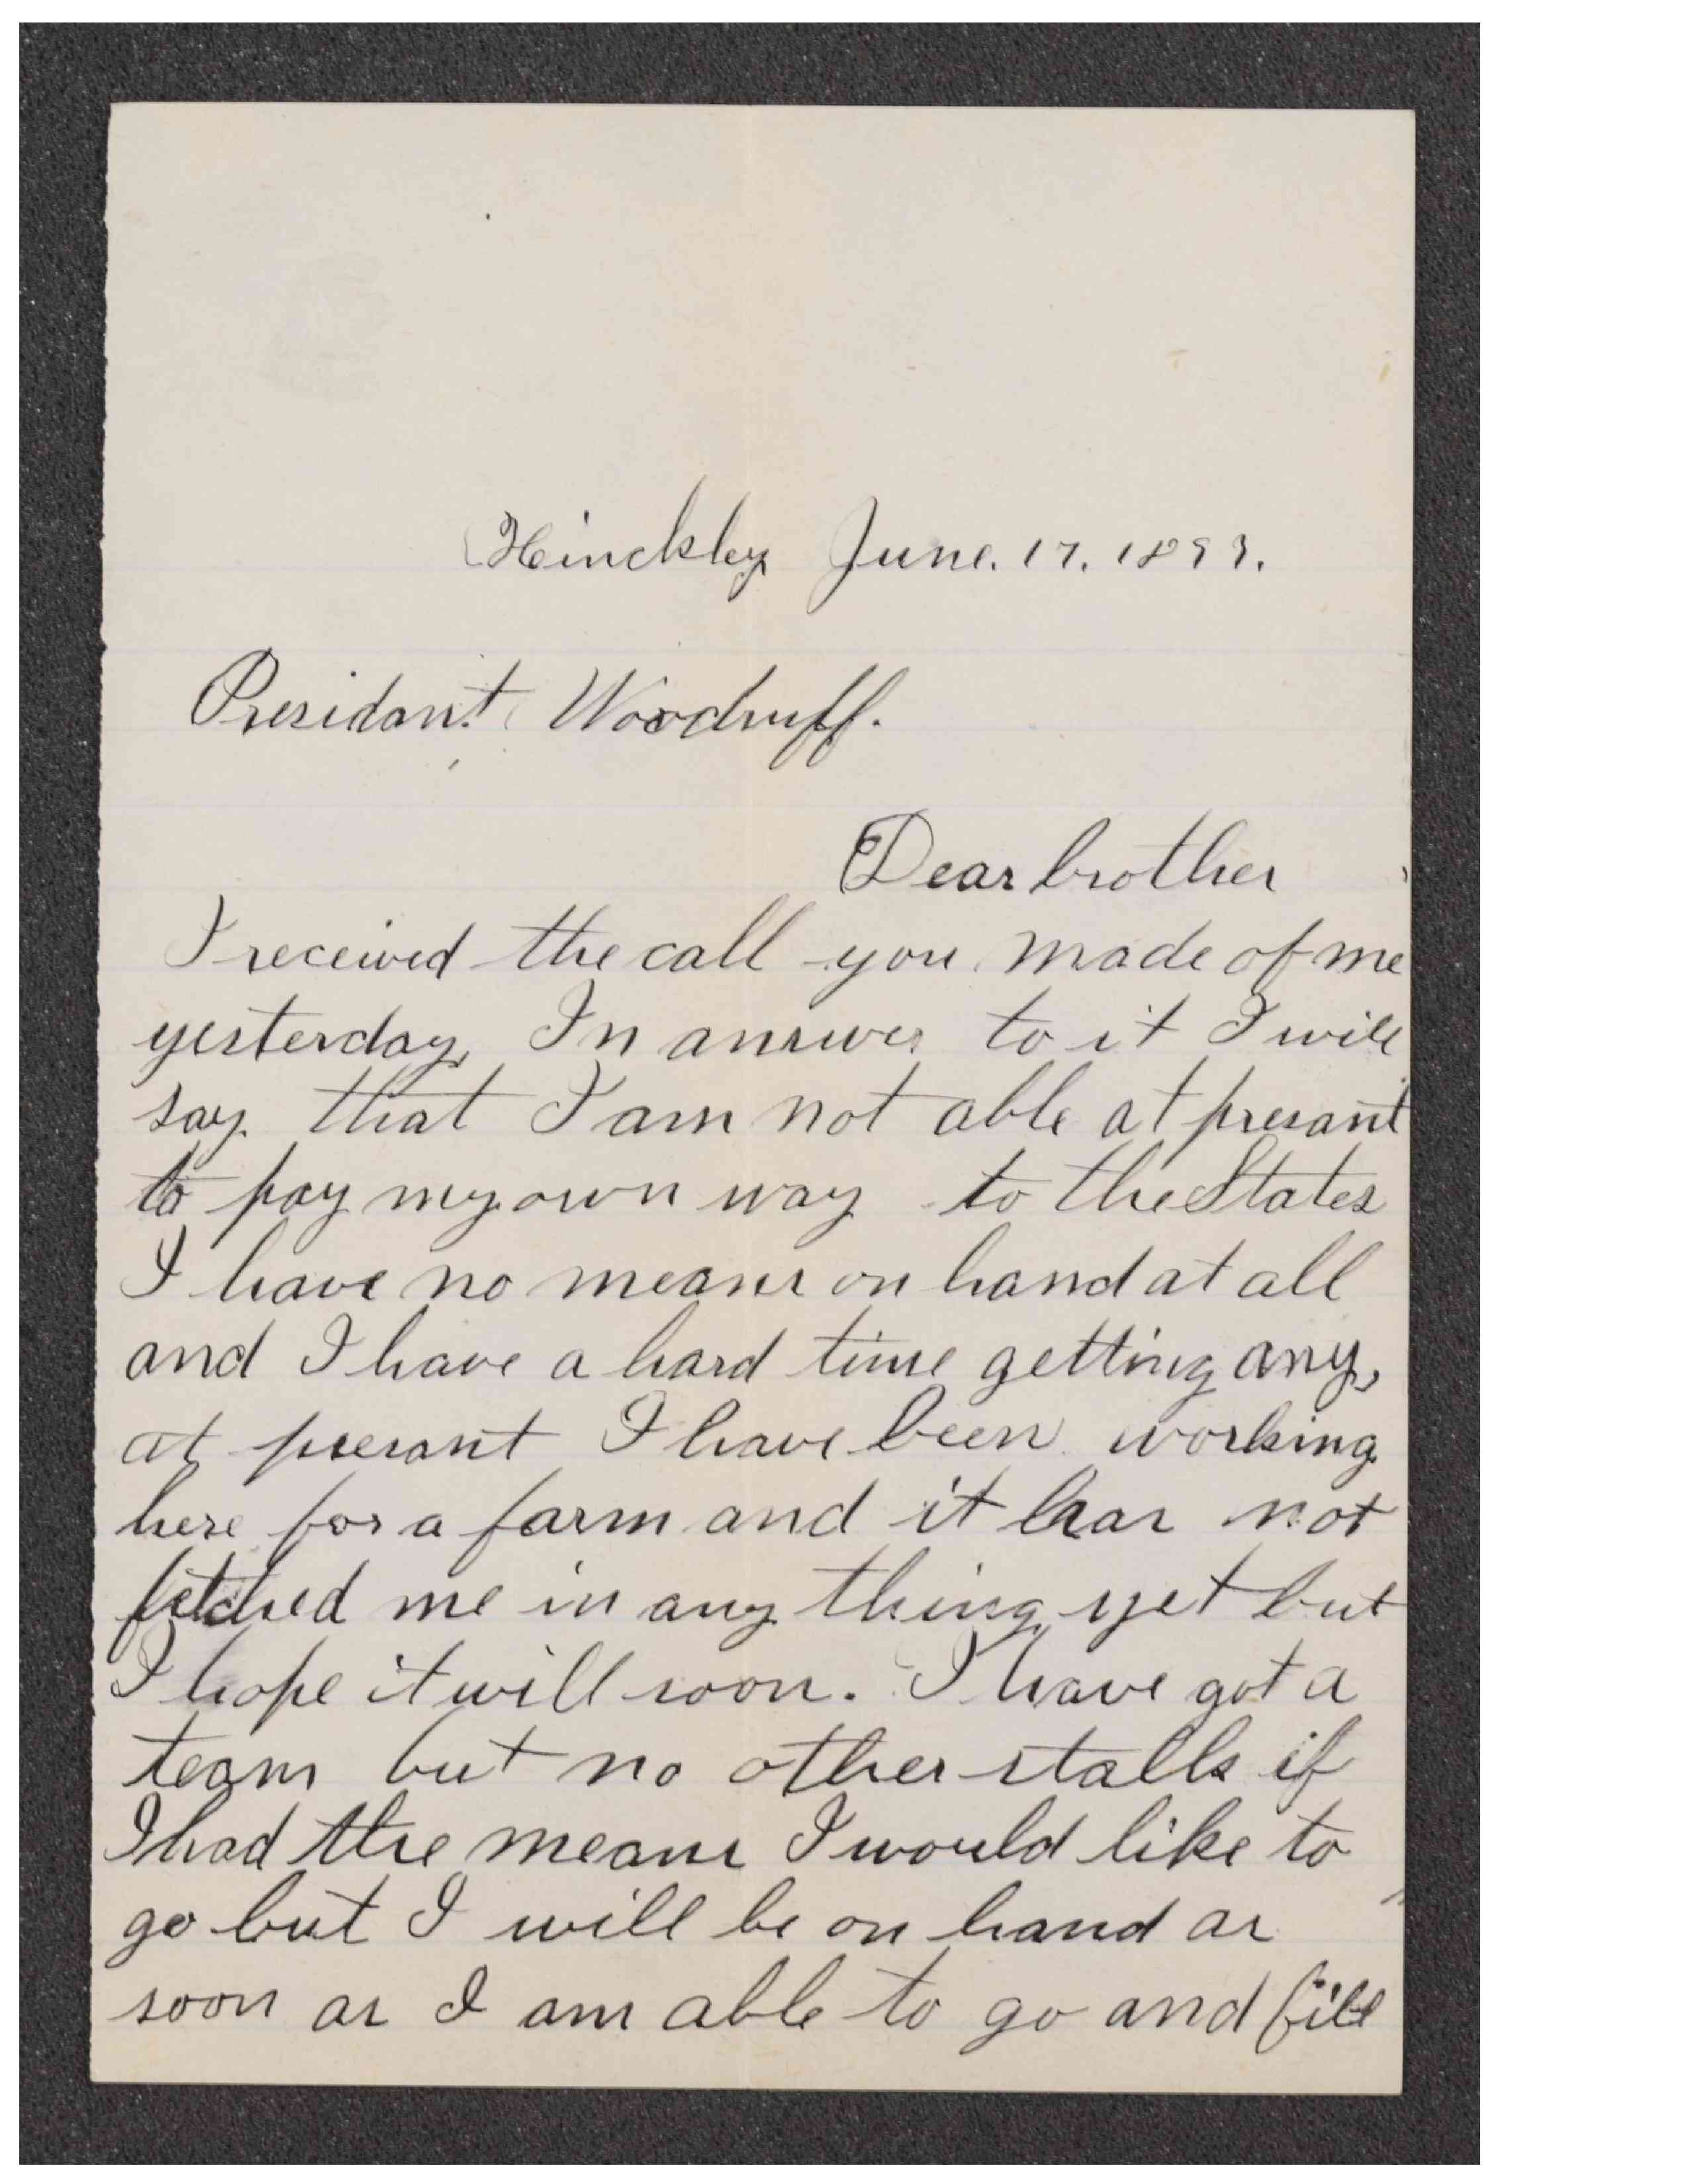 Hinckley June. 17. 1893.
Presidant Woodruff.
Dear brother
I received the call you made of me
yesterday, In answer to it I will
say. that I am not able at presant
to pay my own way to the States
I have no means on hand at all
and I have a hard time getting any,
at presant I have been working
here for a farm and it has not
fetched me in any thing yet but
I hope it will soon. I have got a
team but no other stalk if
I had the means I would like to
go but I will be on hand as
soon as I am able to go and fill